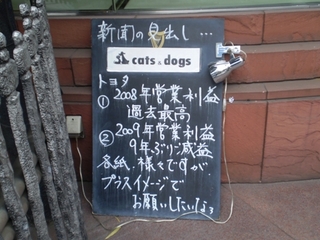 新聞の見出し…
cats & dogs
トヨタ
① 2008年営業利益
過去最高
② 2009年営業利益
9年ぶりに減益
各紙、様々ですが
プラスイメージで
お願いしたいなぁ